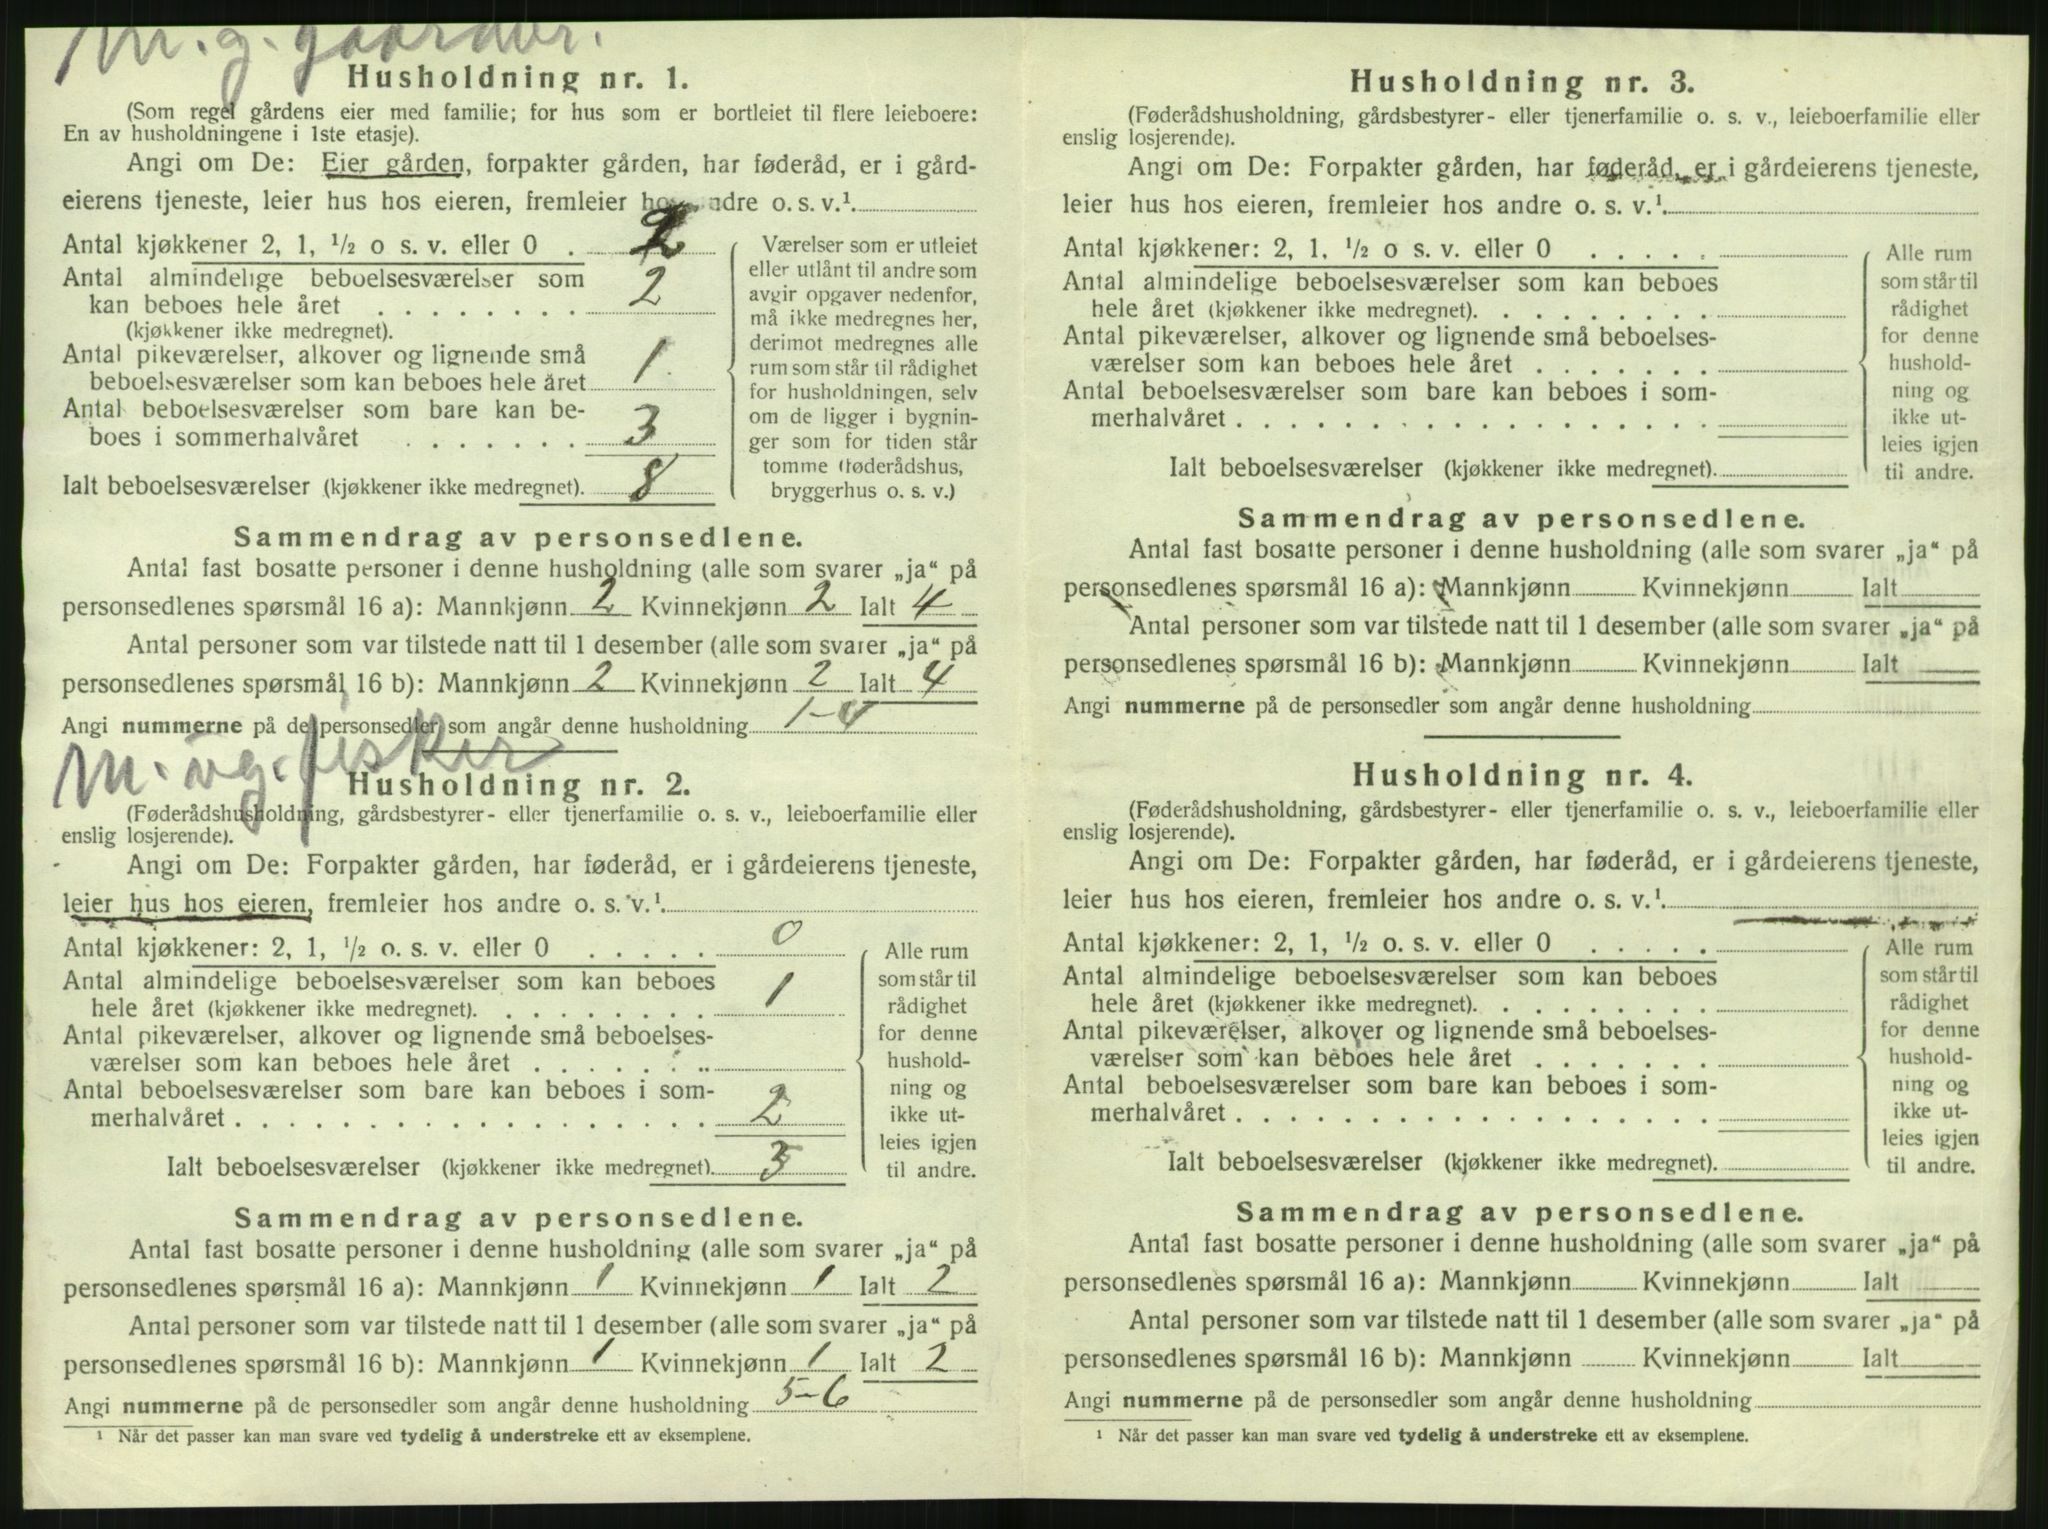 m. g. gaardbr.
Husholdning nr. 1.
(Som regel gårdens eier med familie; for hus som er bortleiet til flere leieboere:
En av husholdningene i 1ste etasje).
Angi om De: Eier gården, forpakter gården, har føderåd, er i gård-
eierens tjeneste, leier hus hos eieren, fremleier hos andre o. s. v.¹
Antal kjøkkener 2, 1, ½ o s. v. eller 0 . 2
Antal almindelige beboelsesværelser som
kan beboes hele året . . . . . . . . 2
(kjøkkener ikke medregnet).
Antal pikeværelser, alkover og lignende små
beboelsesværelser som kan beboes hele året 1
Antal beboelsesværelser som bare kan be-
boes i sommerhalvåret . . . . . . . 3
Ialt beboelsesværelser (kjøkkener ikke medregnet). 8
Værelser som er utleiet
eller utlånt til andre som
avgir opgaver nedenfor,
må ikke medregnes her,
derimot medregnes alle
rum som står til rådighet
for husholdningen, selv
om de ligger i bygnin-
ger som for tiden står
tomme (føderådshus,
bryggerhus o. s. v.)
Sammendrag av personsedlene.
Antal fast bosatte personer i denne husholdning (alle som svarer „ja“ på
personsedlenes spørsmål 16 a): Mannkjønn 2 Kvinnekjønn 2 Ialt 4
Antal personer som var tilstede natt til 1 desember (alle som svarer „ja“ på
personsedlenes spørsmål 16 b): Mannkjønn 2 Kvinnekjønn 2 Ialt 4
Angi nummerne på de personsedler som angår denne husholdning 1-4
m. vg. fisker
Husholdning nr. 2.
(Føderådshusholdning, gårdsbestyrer- eller tjenerfamilie o. s. v., leieboerfamilie eller
enslig losjerende).
Angi om De: Forpakter gården, har føderåd, er i gårdeierens tjeneste,
leier hus hos eieren, fremleier hos andre o. s. v.¹
Antal kjøkkener: 2, 1, ½ o. s. v. eller 0 . . . . . 0
Antal almindelige beboelsesværelser som kan beboes
hele året (kjøkkener ikke medregnet). . . . . . . . . 1
Antal pikeværelser, alkover og lignende små beboelses-
værelser som kan beboes hele året . . . . . . .
Antal beboelsesværelser som bare kan beboes i som-
merhalvåret . . . . . . . . . . . . . . . . . . 2
Ialt beboelsesværelser (kjøkkener ikke medregnet). 3
Alle rum
som står til
rådighet
for denne
hushold-
ning og
ikke ut-
leies igjen
til andre.
Sammendrag av personsedlene.
Antal fast bosatte personer i denne husholdning (alle som svarer „ja“ på
personsedlenes spørsmål 16 a): Mannkjønn 1 Kvinnekjønn 1 Ialt 2
Antal personer som var tilstede natt til 1 desember (alle som svarer „ja“ på
personsedlenes spørsmål 16 b): Mannkjønn 1 Kvinnekjønn 1 Ialt 2
Angi nummerne på de personsedler som angår denne husholdning 5-6
¹ Når det passer kan man svare ved tydelig å understreke ett av eksemplene.
Husholdning nr. 3.
(Føderådshusholdning, gårdsbestyrer- eller tjenerfamilie o. s. v., leieboerfamilie eller
enslig losjerende).
Angi om De: Forpakter gården, har føderåd, er i gårdeierens tjeneste,
leier hus hos eieren, fremleier hos andre o. s. v.¹
Antal kjøkkener: 2, 1, ½ o s. v. eller 0 . . . . .
Antal almindelige beboelsesværelser som kan beboes
hele året (kjøkkener ikke medregnet). . . . . . . . .
Antal pikeværelser, alkover og lignende små beboelses-
værelser som kan beboes hele året . . . . . . .
Antal beboelsesværelser som bare kan beboes i som-
merhalvåret . . . . . . . . . . . . . . . . . .
Ialt beboelsesværelser (kjøkkener ikke medregnet).
Alle rum
som står til
rådighet
for denne
hushold-
ning og
ikke ut-
leies igjen
til andre.
Sammendrag av personsedlene.
Antal fast bosatte personer i denne husholdning (alle som svarer „ja“ på
personsedlenes spørsmål 16 a): Mannkjønn Kvinnekjønn Ialt
Antal personer som var tilstede natt til 1 desember (alle som svarer „ja“ på
personsedlenes spørsmål 16 b): Mannkjønn Kvinnekjønn Ialt
Angi nummerne på de personsedler som angår denne husholdning
Husholdning nr. 4.
(Føderådshusholdning, gårdsbestyrer- eller tjenerfamilie o. s. v., leieboerfamilie eller
enslig losjerende).
Angi om De: Forpakter gården, har føderåd, er i gårdeierens tjeneste,
leier hus hos eieren, fremleier hos andre o. s. v.¹
Antal kjøkkener: 2, 1, ½ o. s. v. eller 0 . . . . .
Antal almindelige beboelsesværelser som kan beboes
hele året (kjøkkener ikke medregnet). . . . . . . . .
Antal pikeværelser, alkover og lignende små beboelses-
værelser som kan beboes hele året . . . . . . .
Antal beboelsesværelser som bare kan beboes i som-
merhalvåret . . . . . . . . . . . . . . . . . .
Ialt beboelsesværelser (kjøkkener ikke medregnet).
Alle rum
som står til
rådighet
for denne
hushold-
ning og
ikke ut-
leies igjen
til andre.
Sammendrag av personsedlene.
Antal fast bosatte personer i denne husholdning (alle som svarer „ja“ på
personsedlenes spørsmål 16 a): Mannkjønn Kvinnekjønn Ialt
Antal personer som var tilstede natt til 1 desember (alle som svarer „ja“ på
personsedlenes spørsmål 16 b): Mannkjønn Kvinnekjønn Ialt
Angi nummerne på de personsedler som angår denne husholdning
¹ Når det passer kan man svare ved tydelig å understreke ett av eksemplene.